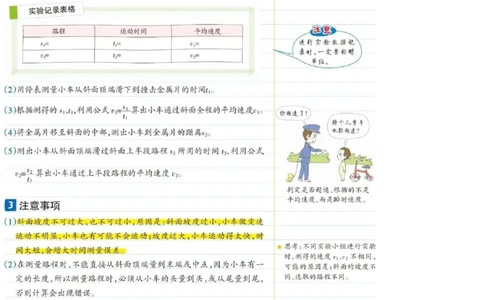 实验记录表格
路程 运动时间 平均速度
s₁= t₁= v₁=
s₂= t₂= v₂=
注意
进行实验数据记
录时,一定要标明
单位。
(2)用停表测量小车从斜面顶端滑下到撞击金属片的时间t₁。
(3)根据测得的s₁、t₁,利用公式v₁=s₁/t₁算出小车通过斜面全程的平均速度v₁。
(4)将金属片移至斜面的中部,测出小车到金属片的距离s₂。
(5)测出小车从斜面顶端滑过斜面上半段路程s₂所用的时间t₂,利用公式
v₂=s₂/t₂算出小车通过上半段路程的平均速度v₂。
你超速了!
骑个儿童车
也能超速?
判定是否超速,依据的不是
平均速度,而是瞬时速度。
3 注意事项
(1)斜面坡度不可过大,也不可过小,原因是:斜面坡度过小,小车做变速
运动不明显,小车也有可能不会运动;坡度过大,小车运动得太快,时
间太短,会增大时间测量误差
(2)在测量路程时,不能直接从斜面顶端量到末端或中点,因为小车有一
定的长度,所以测量路程时,必须从小车的头量到头,或从尾量到尾,
否则计算会出现错误。
★思考:不同实验小组进行实验
时,测得的速度v₁、v₂不相同,
可能的原因是:斜面的坡度不
同、选取的路程不同。